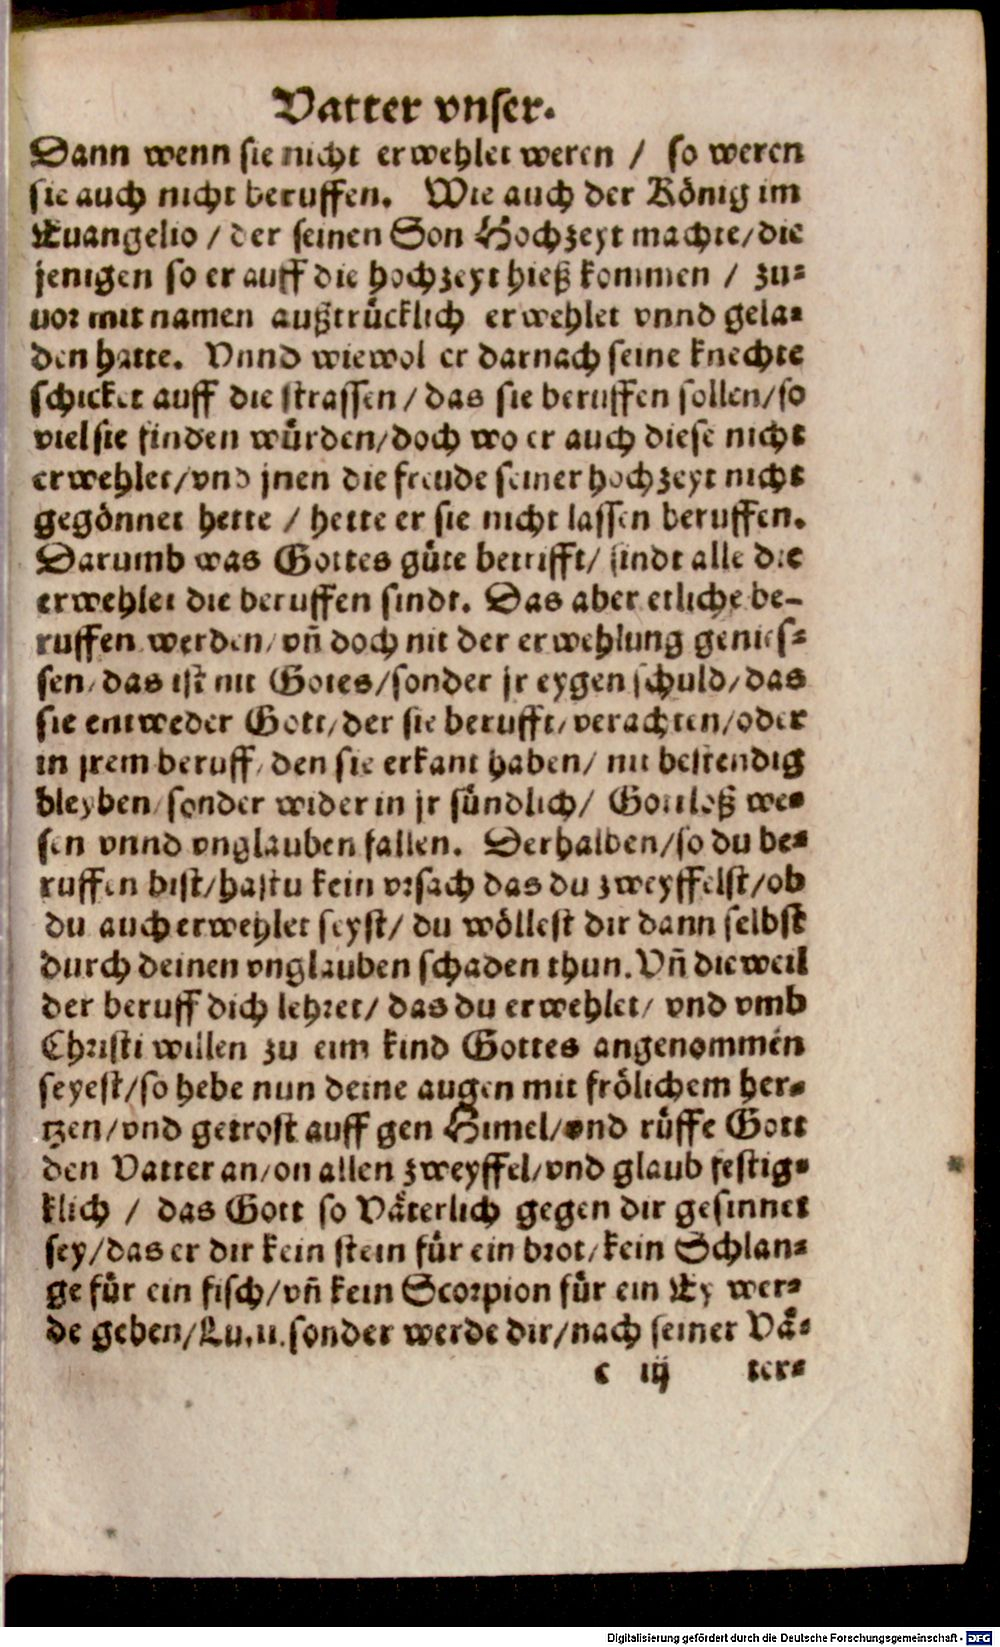 Vatter vnser.
Dann wenn sie nicht erwehlet weren / so weren
sie auch nicht beruffen. Wie auch der König im
Euangelio / der seinen Son Hochzeyt machte / die
jenigen so er auff die hochzeyt hieß kommen / zu-
uor mit namen außtrücklich erwehlet vnnd gela-
den hatte. Vnnd wiewol er darnach seine knechte
schicket auff die strassen / das sie beruffen sollen / so
viel sie finden würden / doch wo er auch diese nicht
erwehlet / vnd jnen die freude seiner hochzeyt nicht
gegönnet hette / hette er sie nicht lassen beruffen.
Darumb was Gottes güte betrifft / sindt alle die
erwehlet die beruffen sindt. Das aber etliche be-
ruffen werden / vñ doch nit der erwehlung genies-
sen / das ist nit Gotes / sonder jr eygen schuld / das
sie entweder Gott / der sie berufft / verachten / oder
in jrem beruff / den sie erkant haben / nit bestendig
bleyben / sonder wider in jr sündlich / Gottloß we-
sen vnnd vnglauben fallen. Derhalben / so du be-
ruffen bist / hastu kein vrsach das du zweyffelst / ob
du auch erwehlet seyst / du wöllest dir dann selbst
durch deinen vnglauben schaden thun. Vñ dieweil
der beruff dich lehret / das du erwehlet / vnd vmb
Christi willen zu eim kind Gottes angenommen
seyest / so hebe nun deine augen mit frölichem her-
tzen / vnd getrost auff gen Himel / vnd rüffe Gott
den Vatter an / on allen zweyffel / vnd glaub festig-
klich / das Gott so Väterlich gegen dir gesinnet
sey / das er dir kein stein für ein brot / kein Schlan-
ge für ein fisch / vñ kein Scorpion für ein Ey wer-
de geben / Lu. 11. sonder werde dir / nach seiner Vä-
c iij ter-
Digitalisierung gefördert durch die Deutsche Forschungsgemeinschaft - DFG